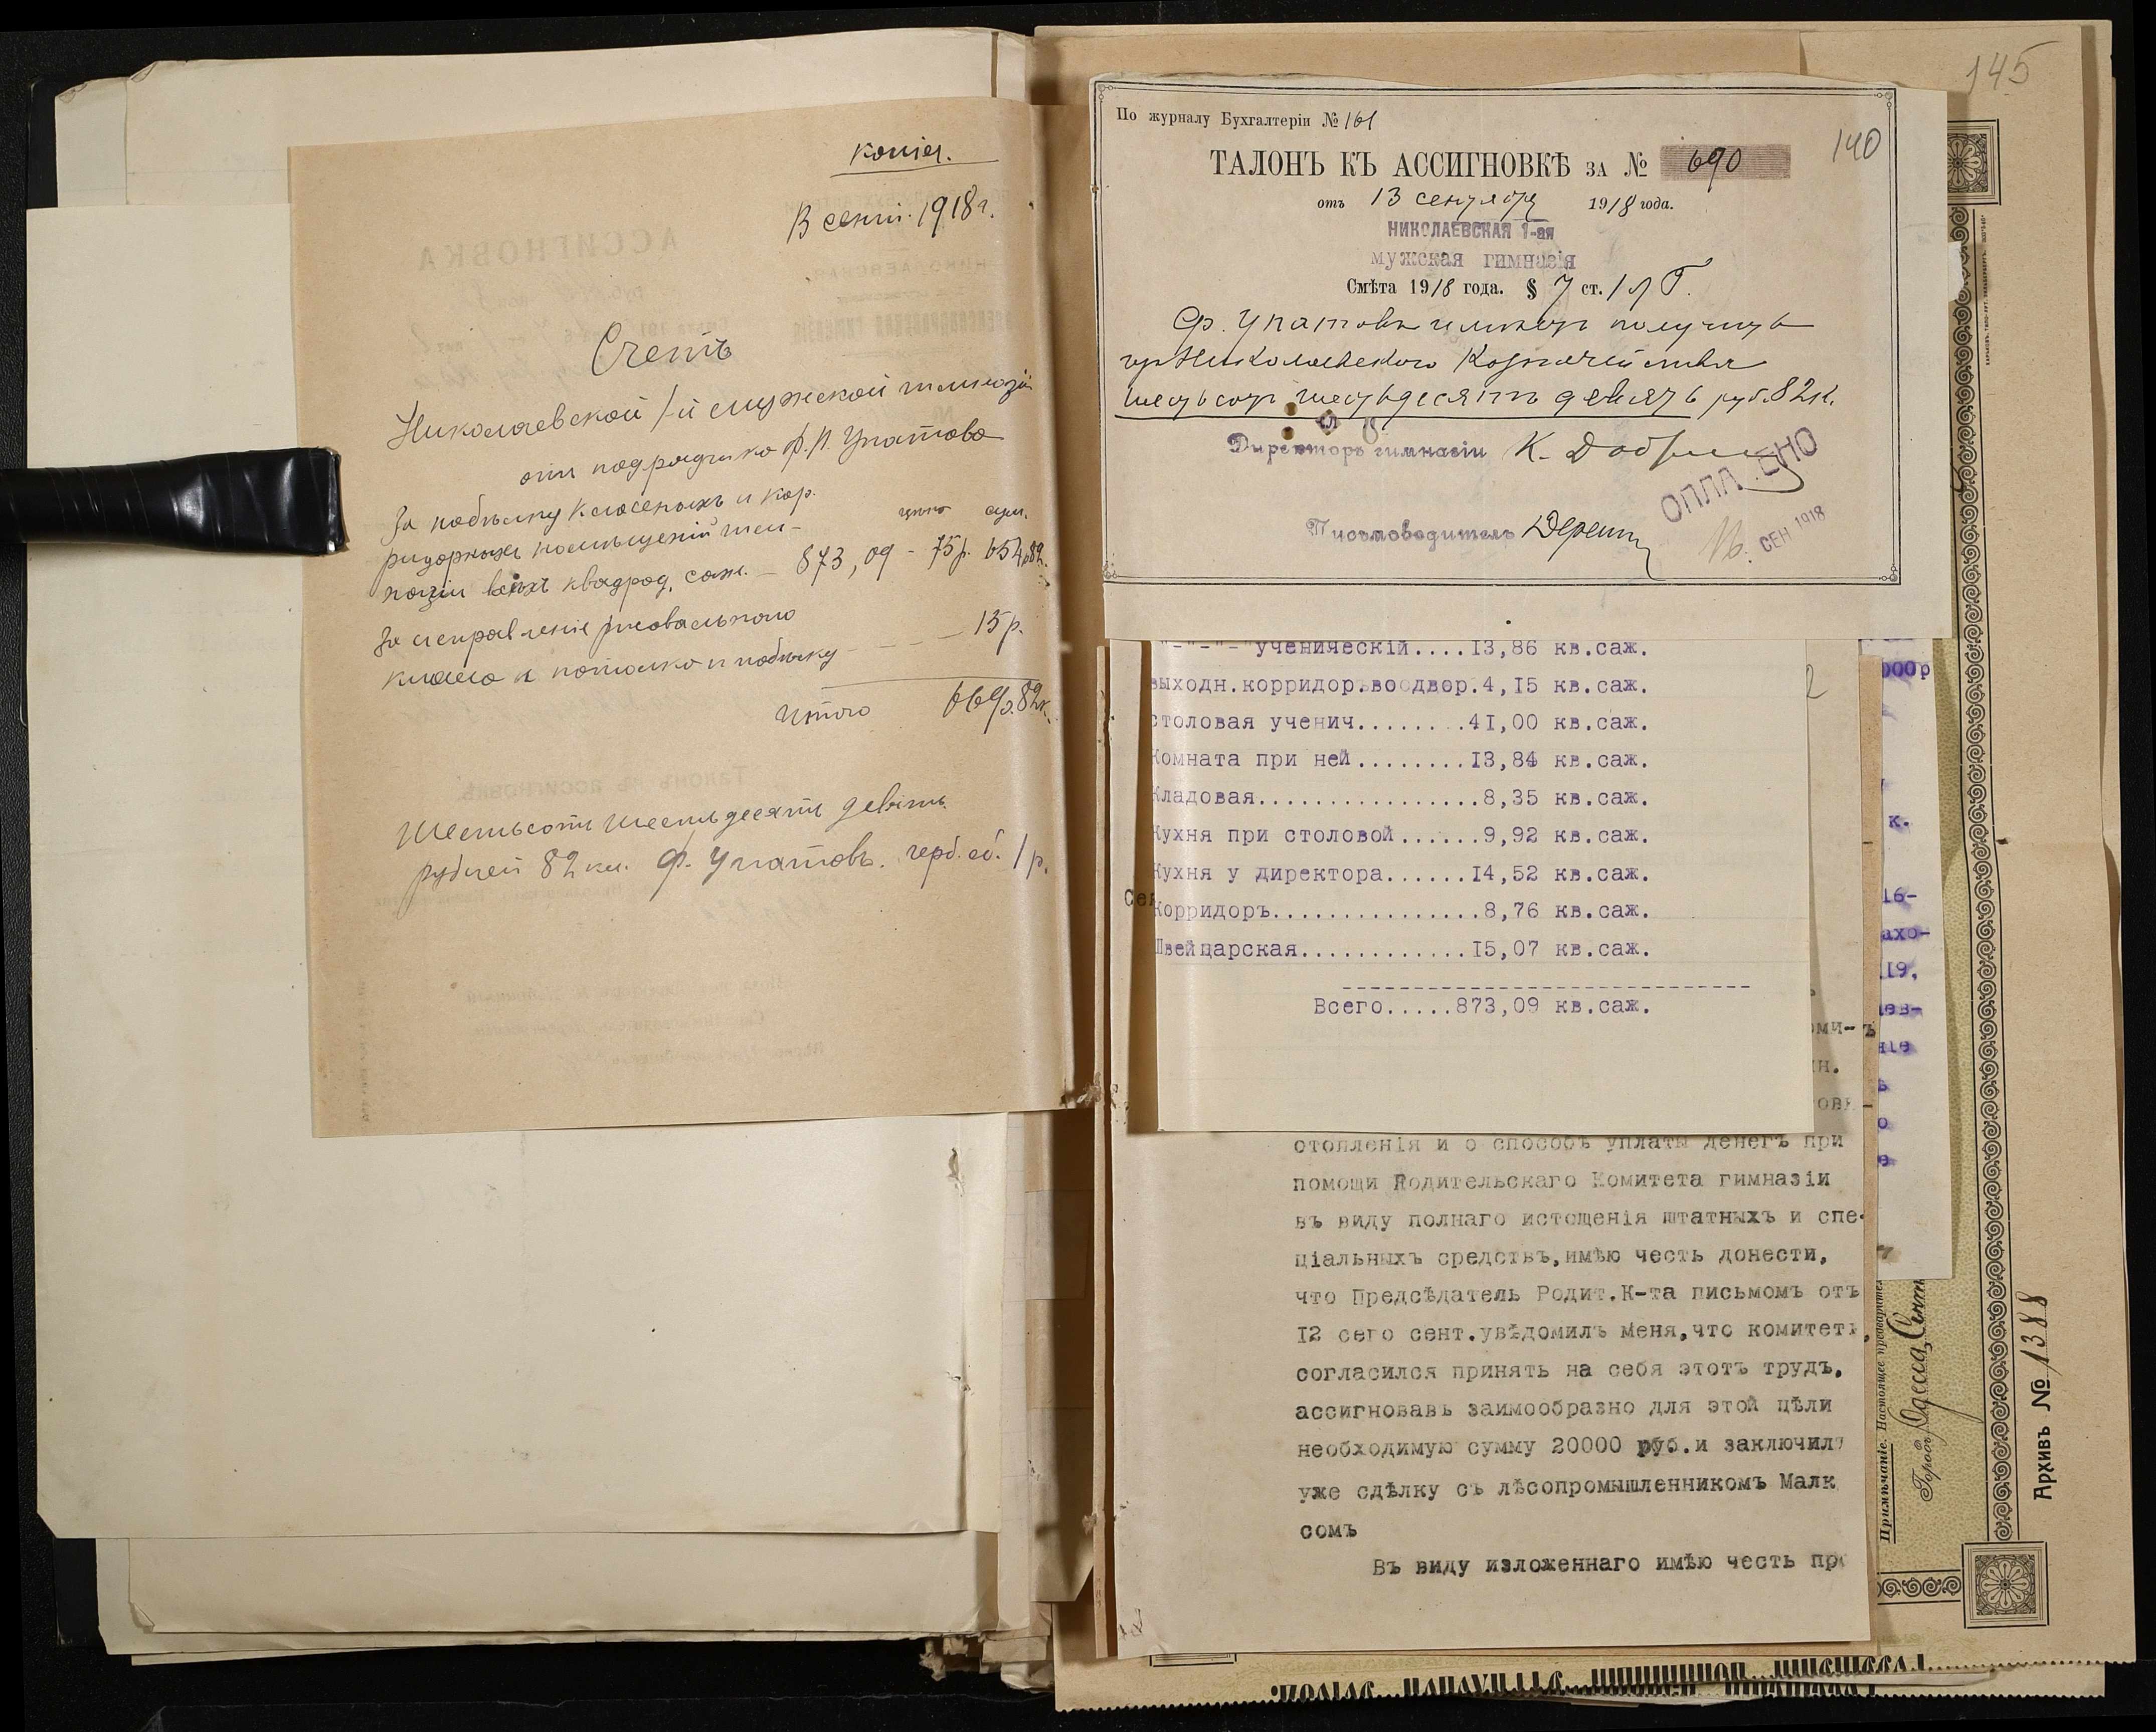 копія.
13 сент. 1918 г.
Счетъ
Николаевской 1-й мужской гимназіи
отъ подрядчика Ф. П. Упатова
За побѣлку классныхъ и кор-
цѣна сум.
ридорныхъ помѣщеній гим-
назіи всѣхъ квадрад. саж. — 873,09 - 75 р. 654,82
За исправленіе рисовальнаго
класса потолка и побѣлку — — — 15 р.
Итого 669 р. 82 к.
Шестьсотъ шестьдесятъ девять
рублей 82 к. Ф. Упатовъ. герб. сб. 1 р.
145
По журналу Бухгалтеріи № 161
140
ТАЛОНЪ КЪ АССИГНОВКѢ ЗА № 690
отъ 13 сентября 1918 года.
НИКОЛАЕВСКАЯ 1-ая
мужская гимназія
Смѣта 1918 года. § 7 ст. 1 л Г.
Ф. Упатовъ имѣетъ получить
изъ Николаевского Казначейства
шестьсотъ шестьдесятъ девять руб. 82 к.
Директоръ гимназіи К.
Письмоводитель
ОПЛАЧЕНО
16. СЕН 1918
"-"-"-"ученическій....13,86 кв.саж.
выходн.корридор.во двор.4,15 кв.саж.
столовая ученич........41,00 кв.саж.
Комната при ней........13,84 кв.саж.
Кладовая................8,35 кв.саж.
Кухня при столовой......9,92 кв.саж.
Кухня у директора......14,52 кв.саж.
Корридоръ...............8,76 кв.саж.
Швейцарская............15,07 кв.саж.
Всего.....873,09 кв.саж.
отопленія и о способѣ уплаты денегъ при
помощи Родительскаго Комитета гимназіи
въ виду полнаго истощенія штатныхъ и спе-
ціальныхъ средствъ,имѣю честь донести,
что Предсѣдатель Родит.К-та письмомъ отъ
12 сего сент.увѣдомилъ меня,что комитетъ,
согласился принять на себя этотъ трудъ,
ассигновавъ заимообразно для этой цѣли
необходимую сумму 20000 руб.и заключилъ
уже сдѣлку съ лѣсопромышленникомъ Малк
сомъ
Въ виду изложеннаго имѣю честь про
000р
к.
16-
ахо-
119,
ев-
ніе
Примѣчаніе. Настоящее
Городъ Одесса,
Архивъ № 1388